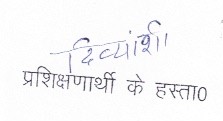 दिव्यांशी
प्रशिक्षणार्थी के हस्ता0